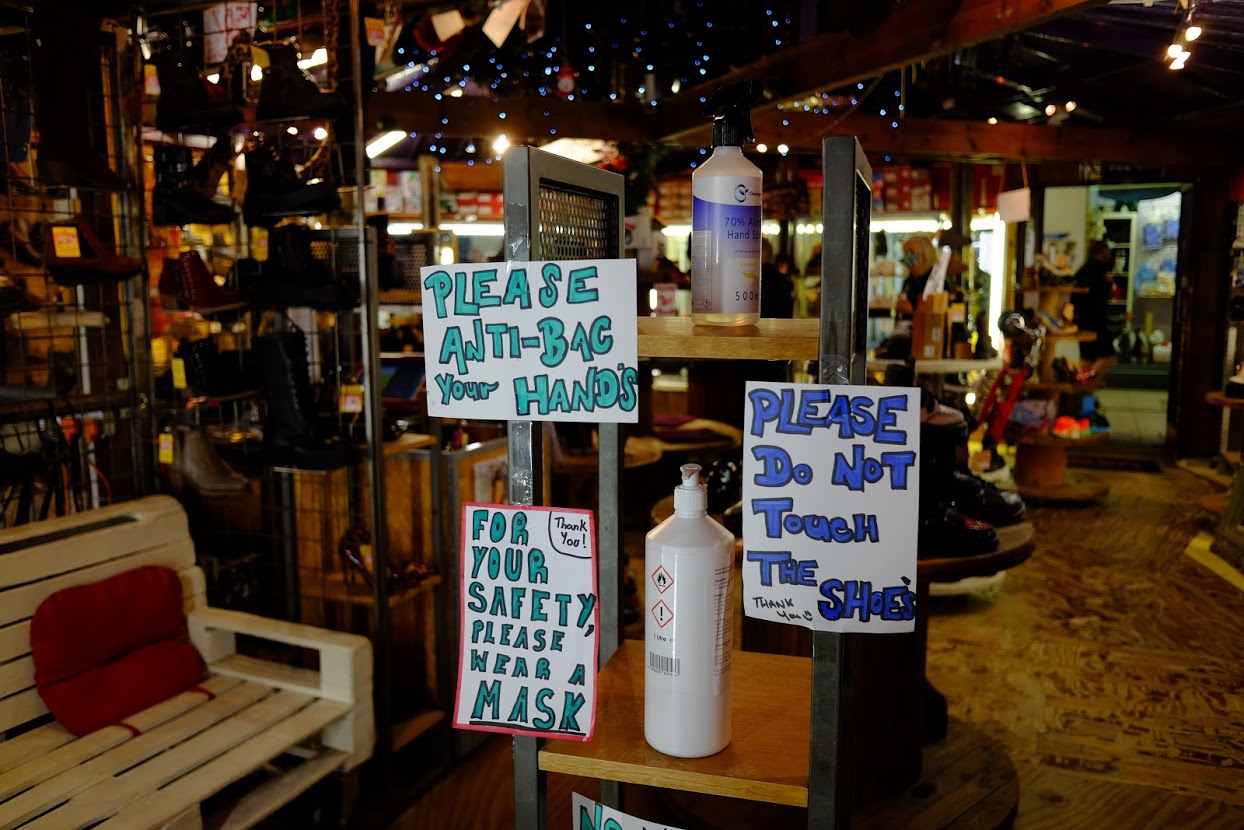 PLEASE
ANTI-BAC
Your HAND'S
FOR
YOUR
SAFETY,
PLEASE
WEAR A
MASK
Thank
You!
70%
Hand
500
1 Litre
PLEASE
DO NOT
TOUCH
THE
SHOE'S
THANK
You